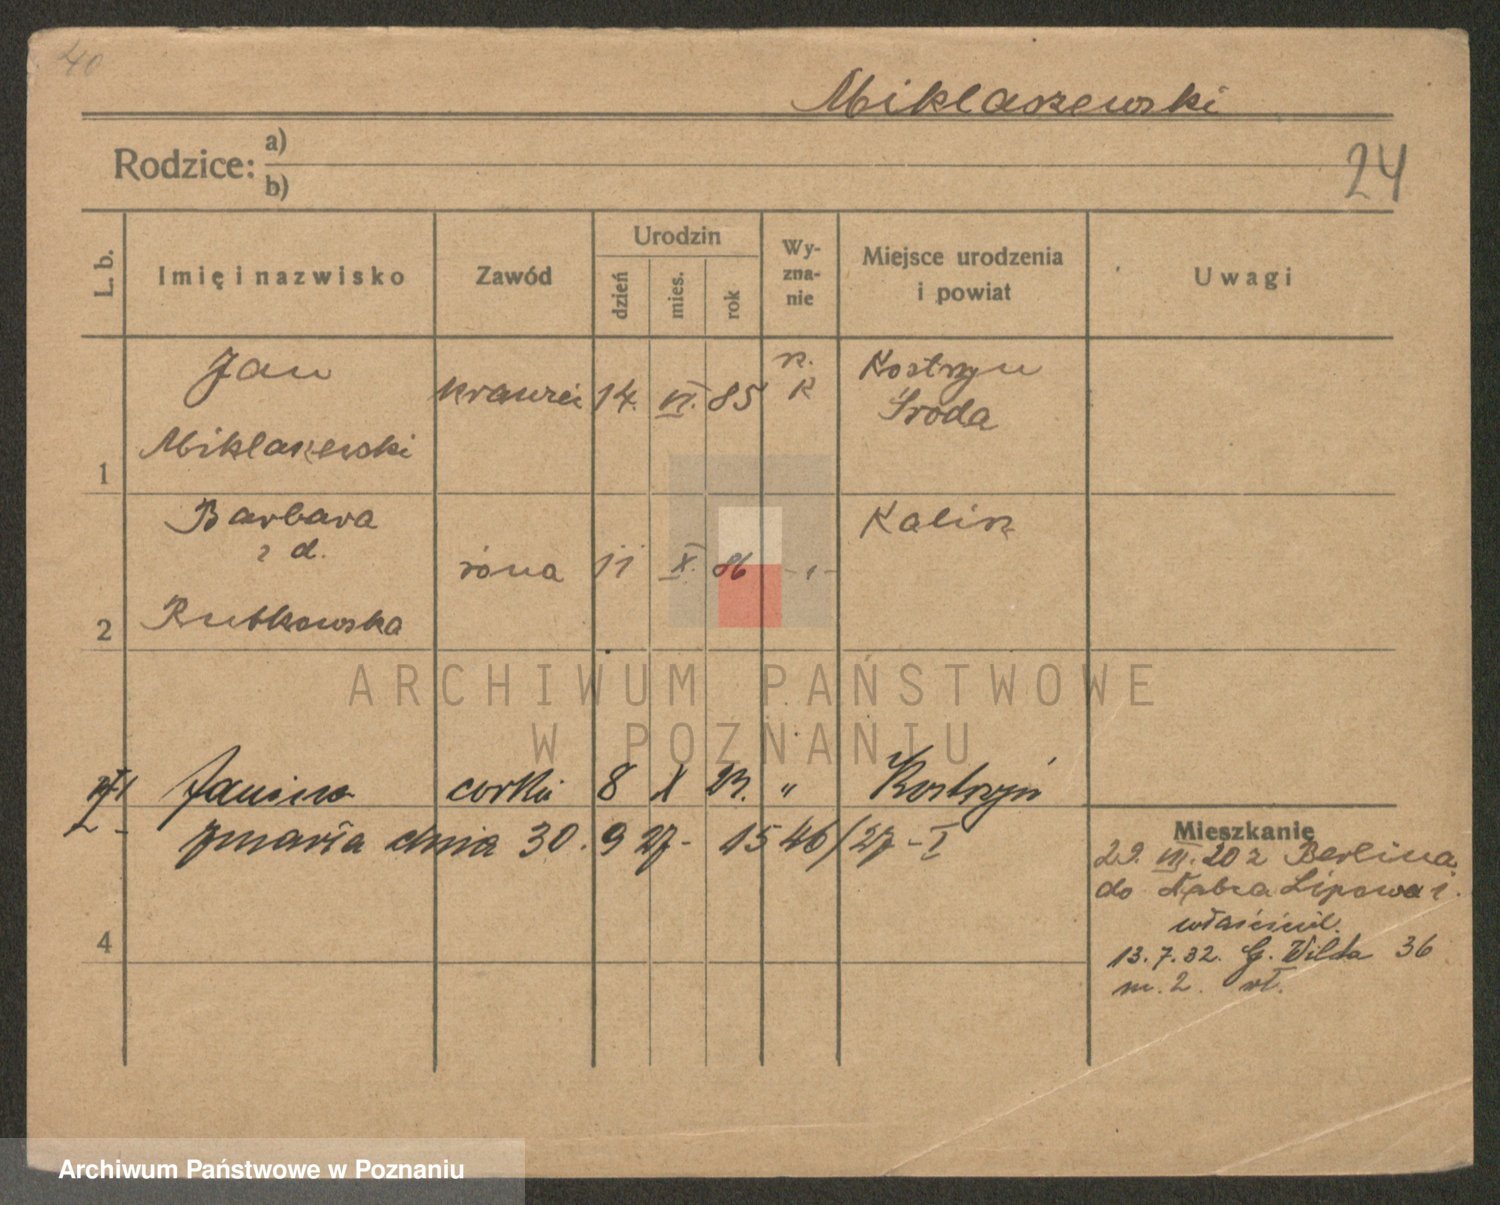 40
Miklaszewski
Rodzice: a)
b)
24
L. b.
Imię i nazwisko
Zawód
Urodzin
dzień
mies.
rok
Wy-
zna-
nie
Miejsce urodzenia
i powiat
Uwagi
Jan
Miklaszewski
krawiec 14. VI. 85
r.
k
Kostrzyn
Środa
1
Barbara
z d.
Rutkowska
żona 11 X. 86 -„-
Kalisz
2
Janina córka 8 X 23. „ Kostrzyń
zmarła dnia 30. 9 27- 1546/27-I
4
Mieszkanie
29. VIII. 20 z Berlina
do Nabra Lipowa 1.
właściciel.
13.7.32. G. Wilda 36
m. 2. wł.
ARCHIWUM PAŃSTWOWE
W POZNANIU
Archiwum Państwowe w Poznaniu